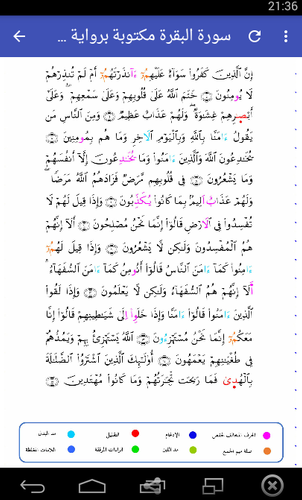 21:36
سورة البقرة مكتوبة برواية ...
إِنَّ اَلذِينَ كَفَرُواْ سَوَآءٌ عَلَيْهِمُۥٓ ءَآنذَرْتَهُمُۥٓ أَمْ لَمْ تُنذِرْهُمْ
لَا يُومِنُونَ ۝ خَتَمَ اَللَّهُ عَلَىٰ قُلُوبِهِمْ وَعَلَىٰ سَمْعِهِمْ وَعَلَىٰ
أَبْصَٰرِهِمْ غِشَٰوَةٌ وَلَهُمْ عَذَابٌ عَظِيمٌ ۝ وَمِنَ اَلنَّاسِ مَن
يَقُولُ ءَامَنَّا بِاللَّهِ وَبِالْيَوْمِ اِلَاخِرِ وَمَا هُم بِمُومِنِينَ ۝
يُخَٰدِعُونَ اَللَّهَ وَالذِينَ ءَامَنُواْ وَمَا يُخَٰدِعُونَ إِلَّآ أَنفُسَهُمْ
وَمَا يَشْعُرُونَ ۝ فِي قُلُوبِهِم مَّرَضٌ فَزَادَهُمُ اُللَّهُ مَرَضاً
وَلَهُمْ عَذَابٌ اَلِيمٌ بِمَا كَانُواْ يُكَذِّبُونَ ۝ وَإِذَا قِيلَ لَهُمْ لَا
تُفْسِدُواْ فِي اِلَارْضِ قَالُوٓاْ إِنَّمَا نَحْنُ مُصْلِحُونَ ۝ أَلَآ إِنَّهُمْ
هُمُ اُلْمُفْسِدُونَ وَلَٰكِن لَّا يَشْعُرُونَ ۝ وَإِذَا قِيلَ لَهُمُۥٓ
ءَامِنُواْ كَمَآ ءَامَنَ اَلنَّاسُ قَالُوٓاْ أَنُومِنُ كَمَآ ءَامَنَ اَلسُّفَهَآءُ
اَلَآ إِنَّهُمْ هُمُ اُلسُّفَهَآءُ وَلَٰكِن لَّا يَعْلَمُونَ ۝ وَإِذَا لَقُواْ
اُلذِينَ ءَامَنُواْ قَالُوٓاْ ءَامَنَّا وَإِذَا خَلَوِاْ اِلَىٰ شَيَٰطِينِهِمْ قَالُوٓاْ إِنَّا
مَعَكُمُۥٓ إِنَّمَا نَحْنُ مُسْتَهْزِءُونَ ۝ اَللَّهُ يَسْتَهْزِئُ بِهِمْ وَيَمُدُّهُمْ
فِي طُغْيَٰنِهِمْ يَعْمَهُونَ ۝ أُوْلَٰٓئِكَ اَلذِينَ اَشْتَرَوُاْ اُلضَّلَٰلَةَ
بِالْهُدَىٰ فَمَا رَبِحَت تِّجَٰرَتُهُمْ وَمَا كَانُواْ مُهْتَدِينَ ۝
الحرف المخالف لحفص الادغام التقليل مد البدل
صلة ميم الجمع مد اللين الراءات المرققة اللامات المغلظة